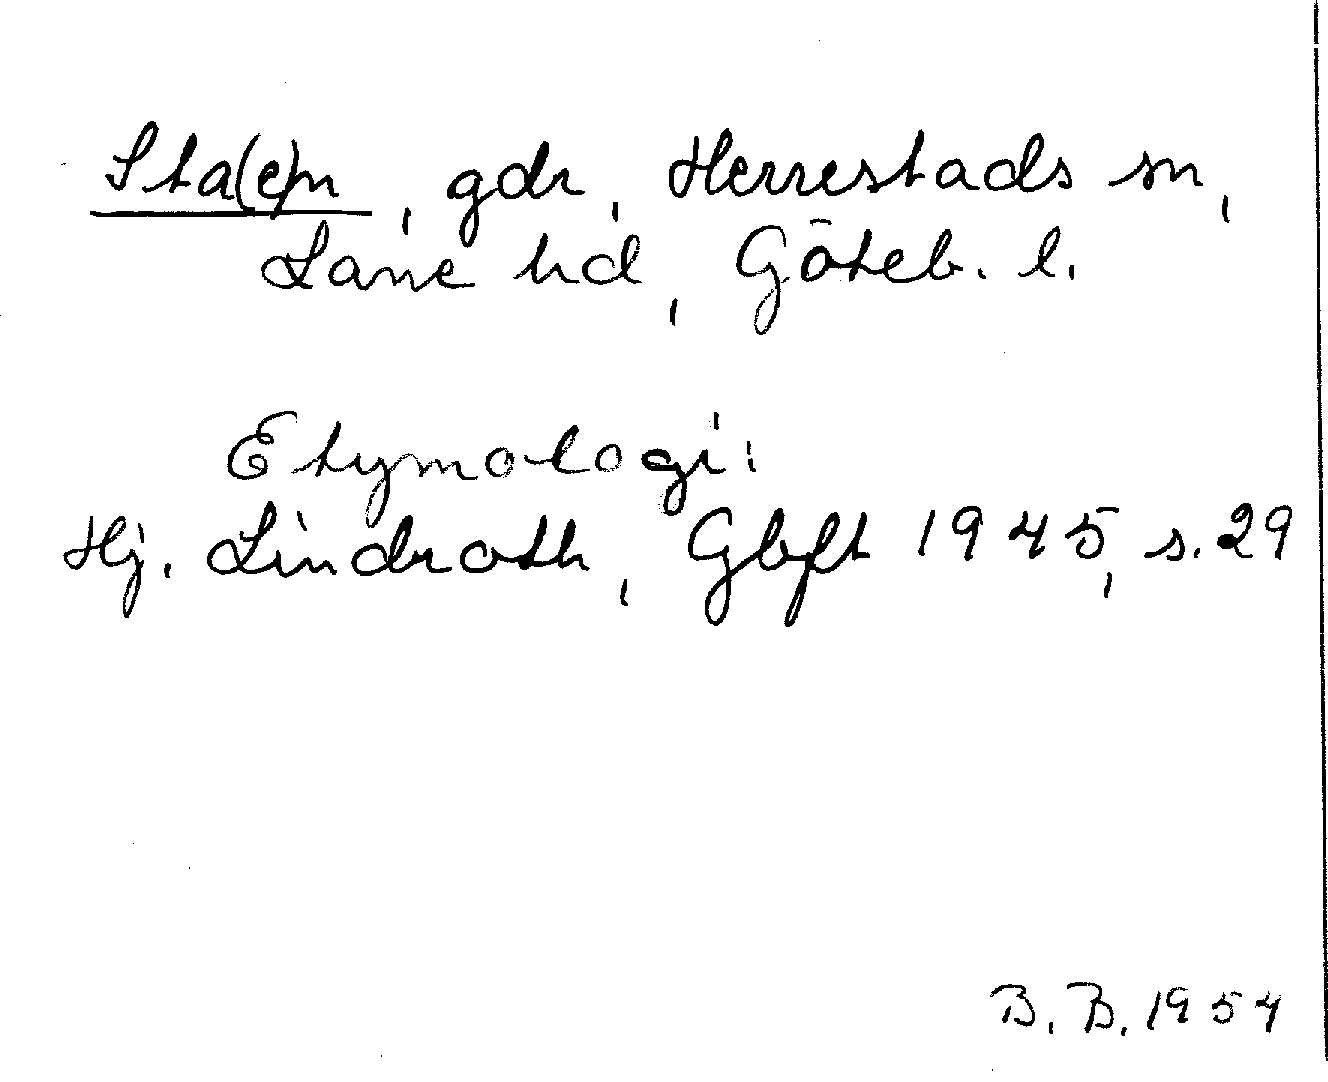 Sta(e)n, gdr, Herrestads sn,
Lane hd, Göteb. l.
Etymologi:
Hj. Lindroth, Gbgft 1945, s. 29
B. B. 1954